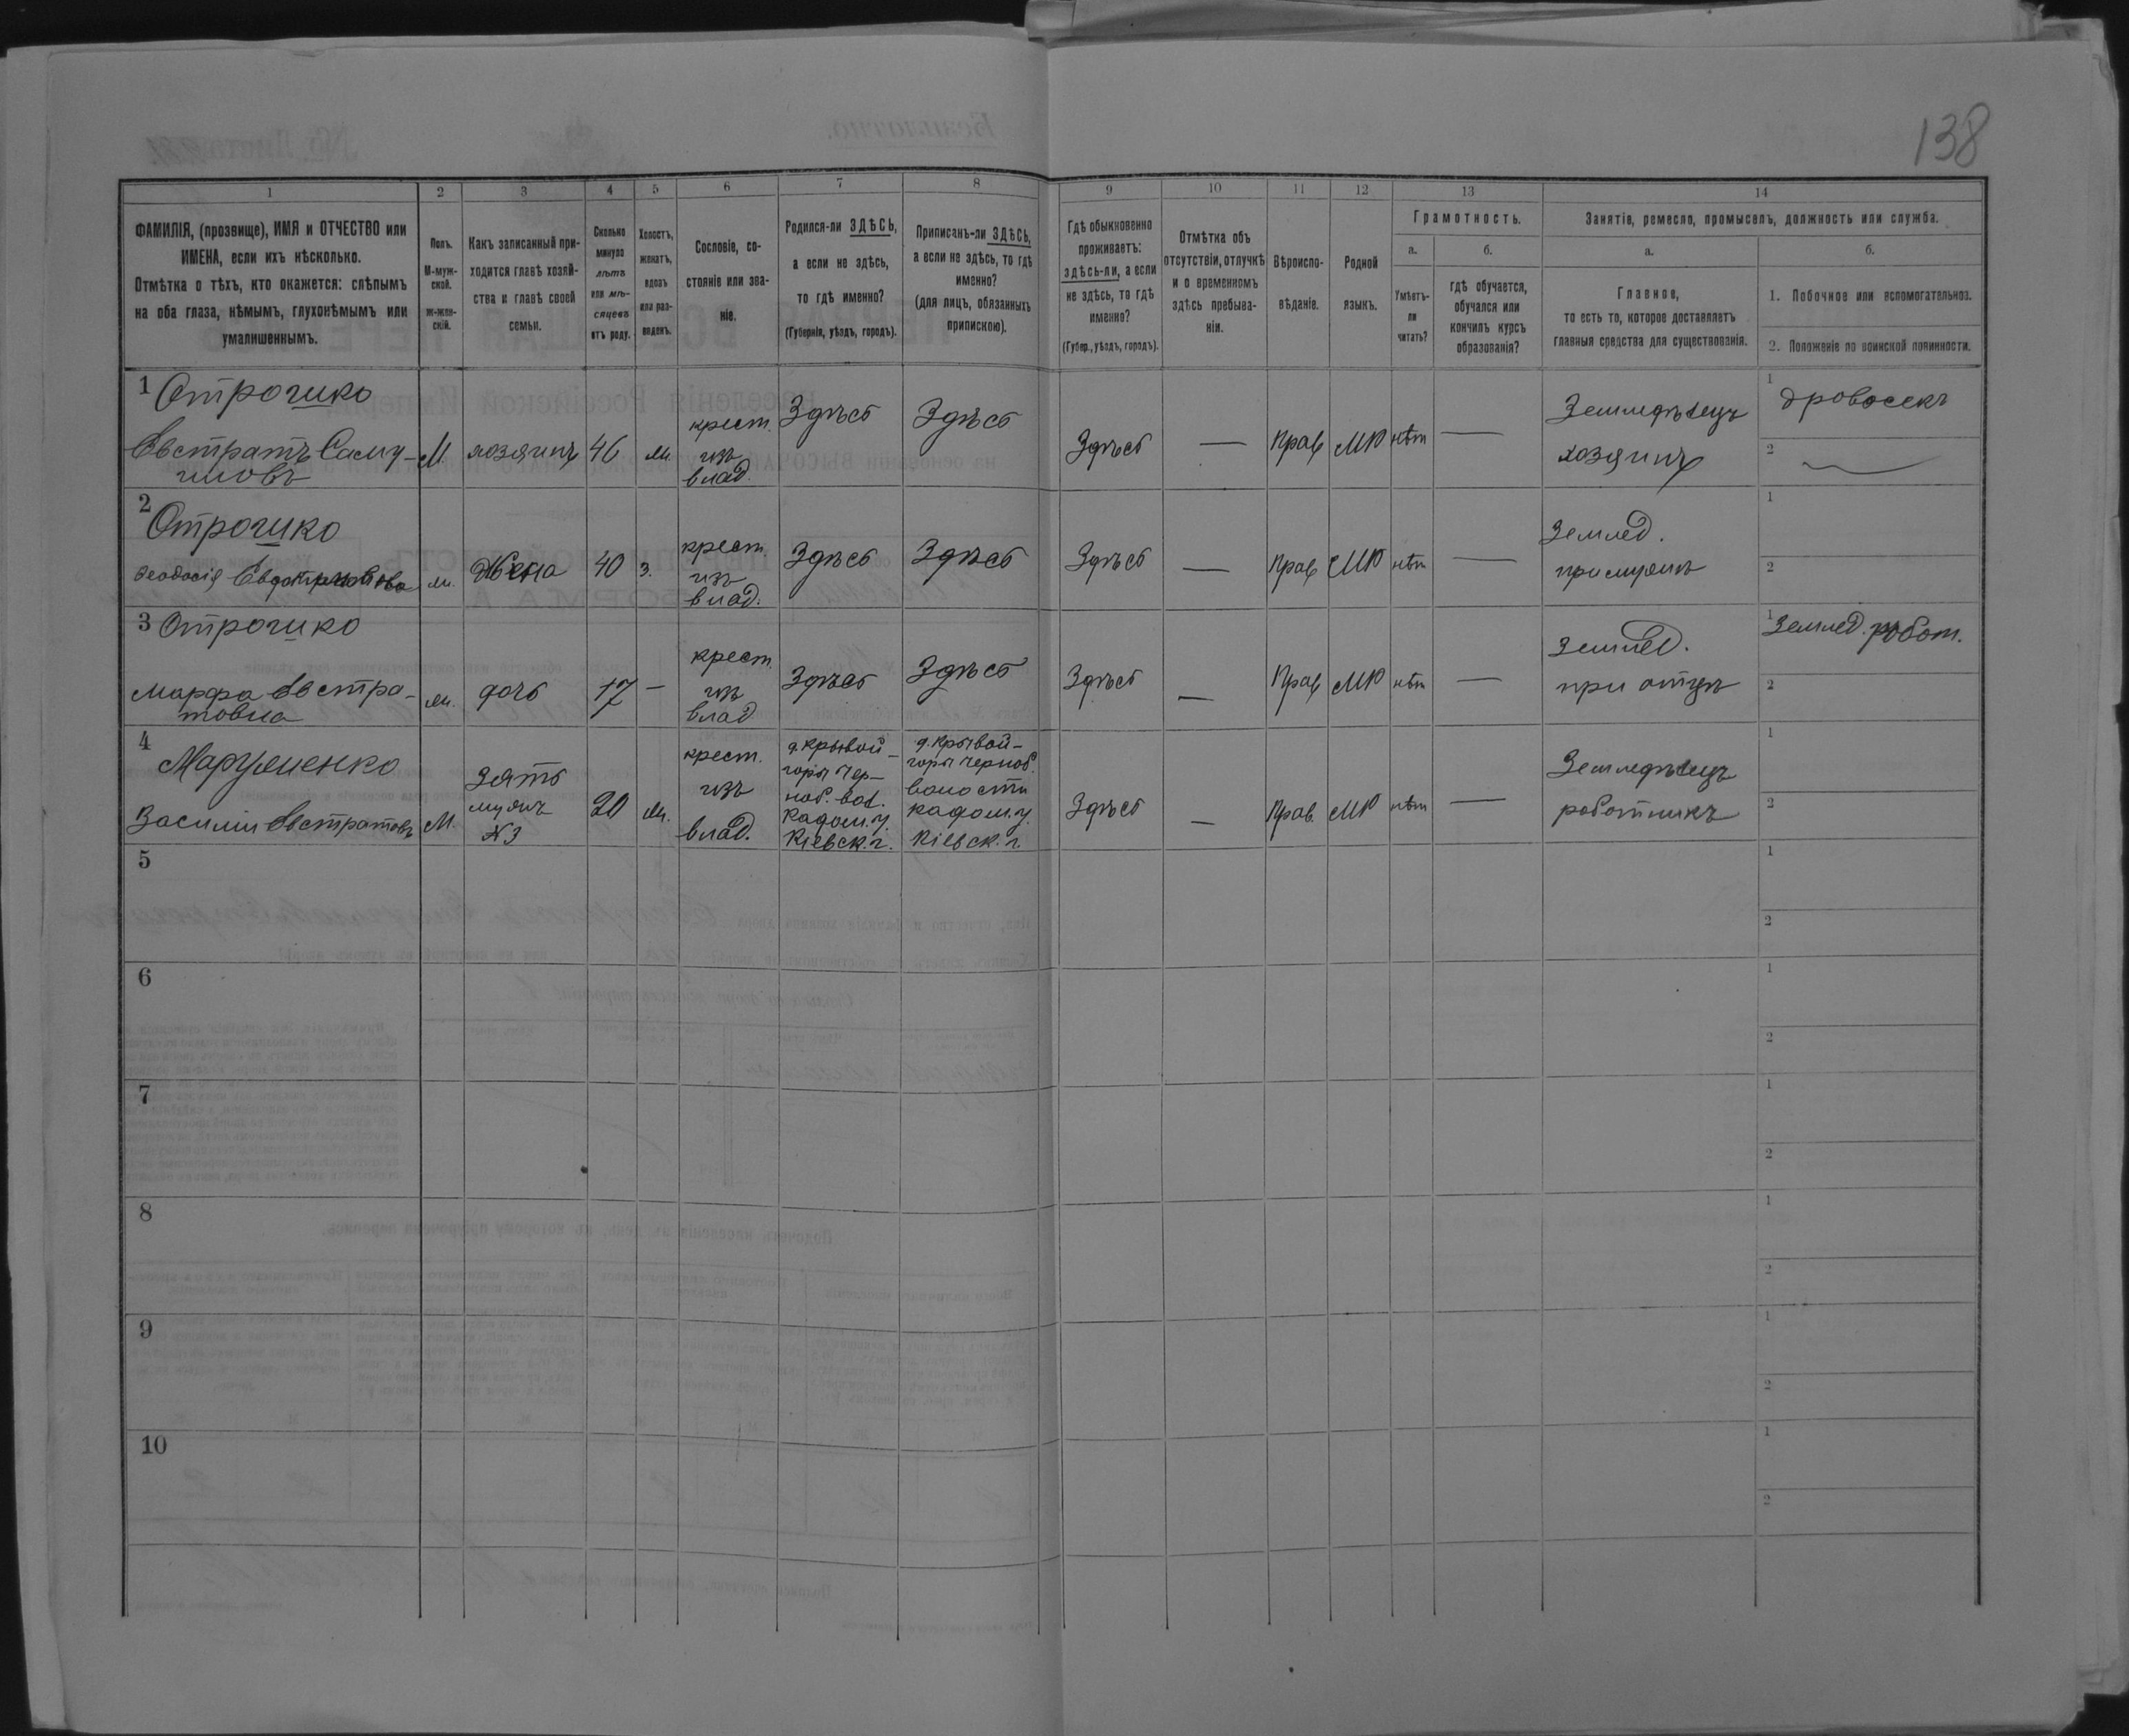 138
1 2 3 4 5 6 7 8 9 10 11 12 13 14
ФАМИЛІЯ, (прозвище), ИМЯ и ОТЧЕСТВО или
ИМЕНА, если ихъ нѣсколько.
Отмѣтка о тѣхъ, кто окажется: слѣпымъ
на оба глаза, нѣмымъ, глухонѣмымъ или
умалишеннымъ.
Полъ.
М-муж-
ской.
ж-жен-
скій.
Какъ записанный при-
ходится главѣ хозяй-
ства и главѣ своей
семьи.
Сколько
минуло
лѣтъ
или мѣ-
сяцевъ
отъ роду.
Холостъ,
женатъ,
вдовъ
или раз-
веденъ.
Сословіе, со-
стояніе или зва-
ніе.
Родился-ли ЗДѢСЬ,
а если не здѣсь,
то гдѣ именно?
(Губернія, уѣздъ, городъ).
Приписанъ-ли ЗДѢСЬ,
а если не здѣсь, то гдѣ
именно?
(для лицъ, обязанныхъ
припискою).
Гдѣ обыкновенно
проживаетъ:
здѣсь-ли, а если
не здѣсь, то гдѣ
именно?
(Губер., уѣздъ, городъ).
Отмѣтка объ
отсутствіи, отлучкѣ
и о временномъ
здѣсь пребыва-
ніи.
Вѣроиспо-
вѣданіе.
Родной
языкъ.
Грамотность.
а.
Умѣетъ-
ли
читать?
б.
гдѣ обучается,
обучался или
кончилъ курсъ
образованія?
Занятіе, ремесло, промыселъ, должность или служба.
а.
Главное,
то есть то, которое доставляетъ
главныя средства для существованія.
б.
1. Побочное или вспомогательное.
2. Положеніе по воинской повинности.
1 Отрошко
Евстратъ Саму-
иловъ
М. хозяинъ 46 ж.
крест.
изъ
влад.
Здѣсь Здѣсь Здѣсь — Прав МР нѣт —
Земледѣлецъ
хозяинъ
1 дровосекъ
2 —
2 Отрошко
Феодосія
ж. Жена 40 з.
крест.
изъ
влад.
Здѣсь Здѣсь Здѣсь — Прав МР нѣт —
Землед.
при мужѣ
1
2
3 Отрошко
Марфа Евстра-
товна
ж. дочь 17 —
крест.
изъ
влад
Здѣсь Здѣсь Здѣсь — Прав МР нѣт —
Землед.
при отцѣ
1 Землед. робот.
2
4
Василій Евстратовъ
М.
зять
мужъ
№3
20 ж.
крест.
изъ
влад.
д. Крывой-
горы Чер-
ноб. вол.
Радом. у.
Кіевск. г.
д. Крывой-
горы Черноб.
волости
Радом. у.
Кіевск. г.
Здѣсь — Прав. МР нѣт —
Земледѣлецъ
роботникъ
1
2
5
1
2
6
1
2
7
1
2
8
1
2
9
1
2
10
1
2